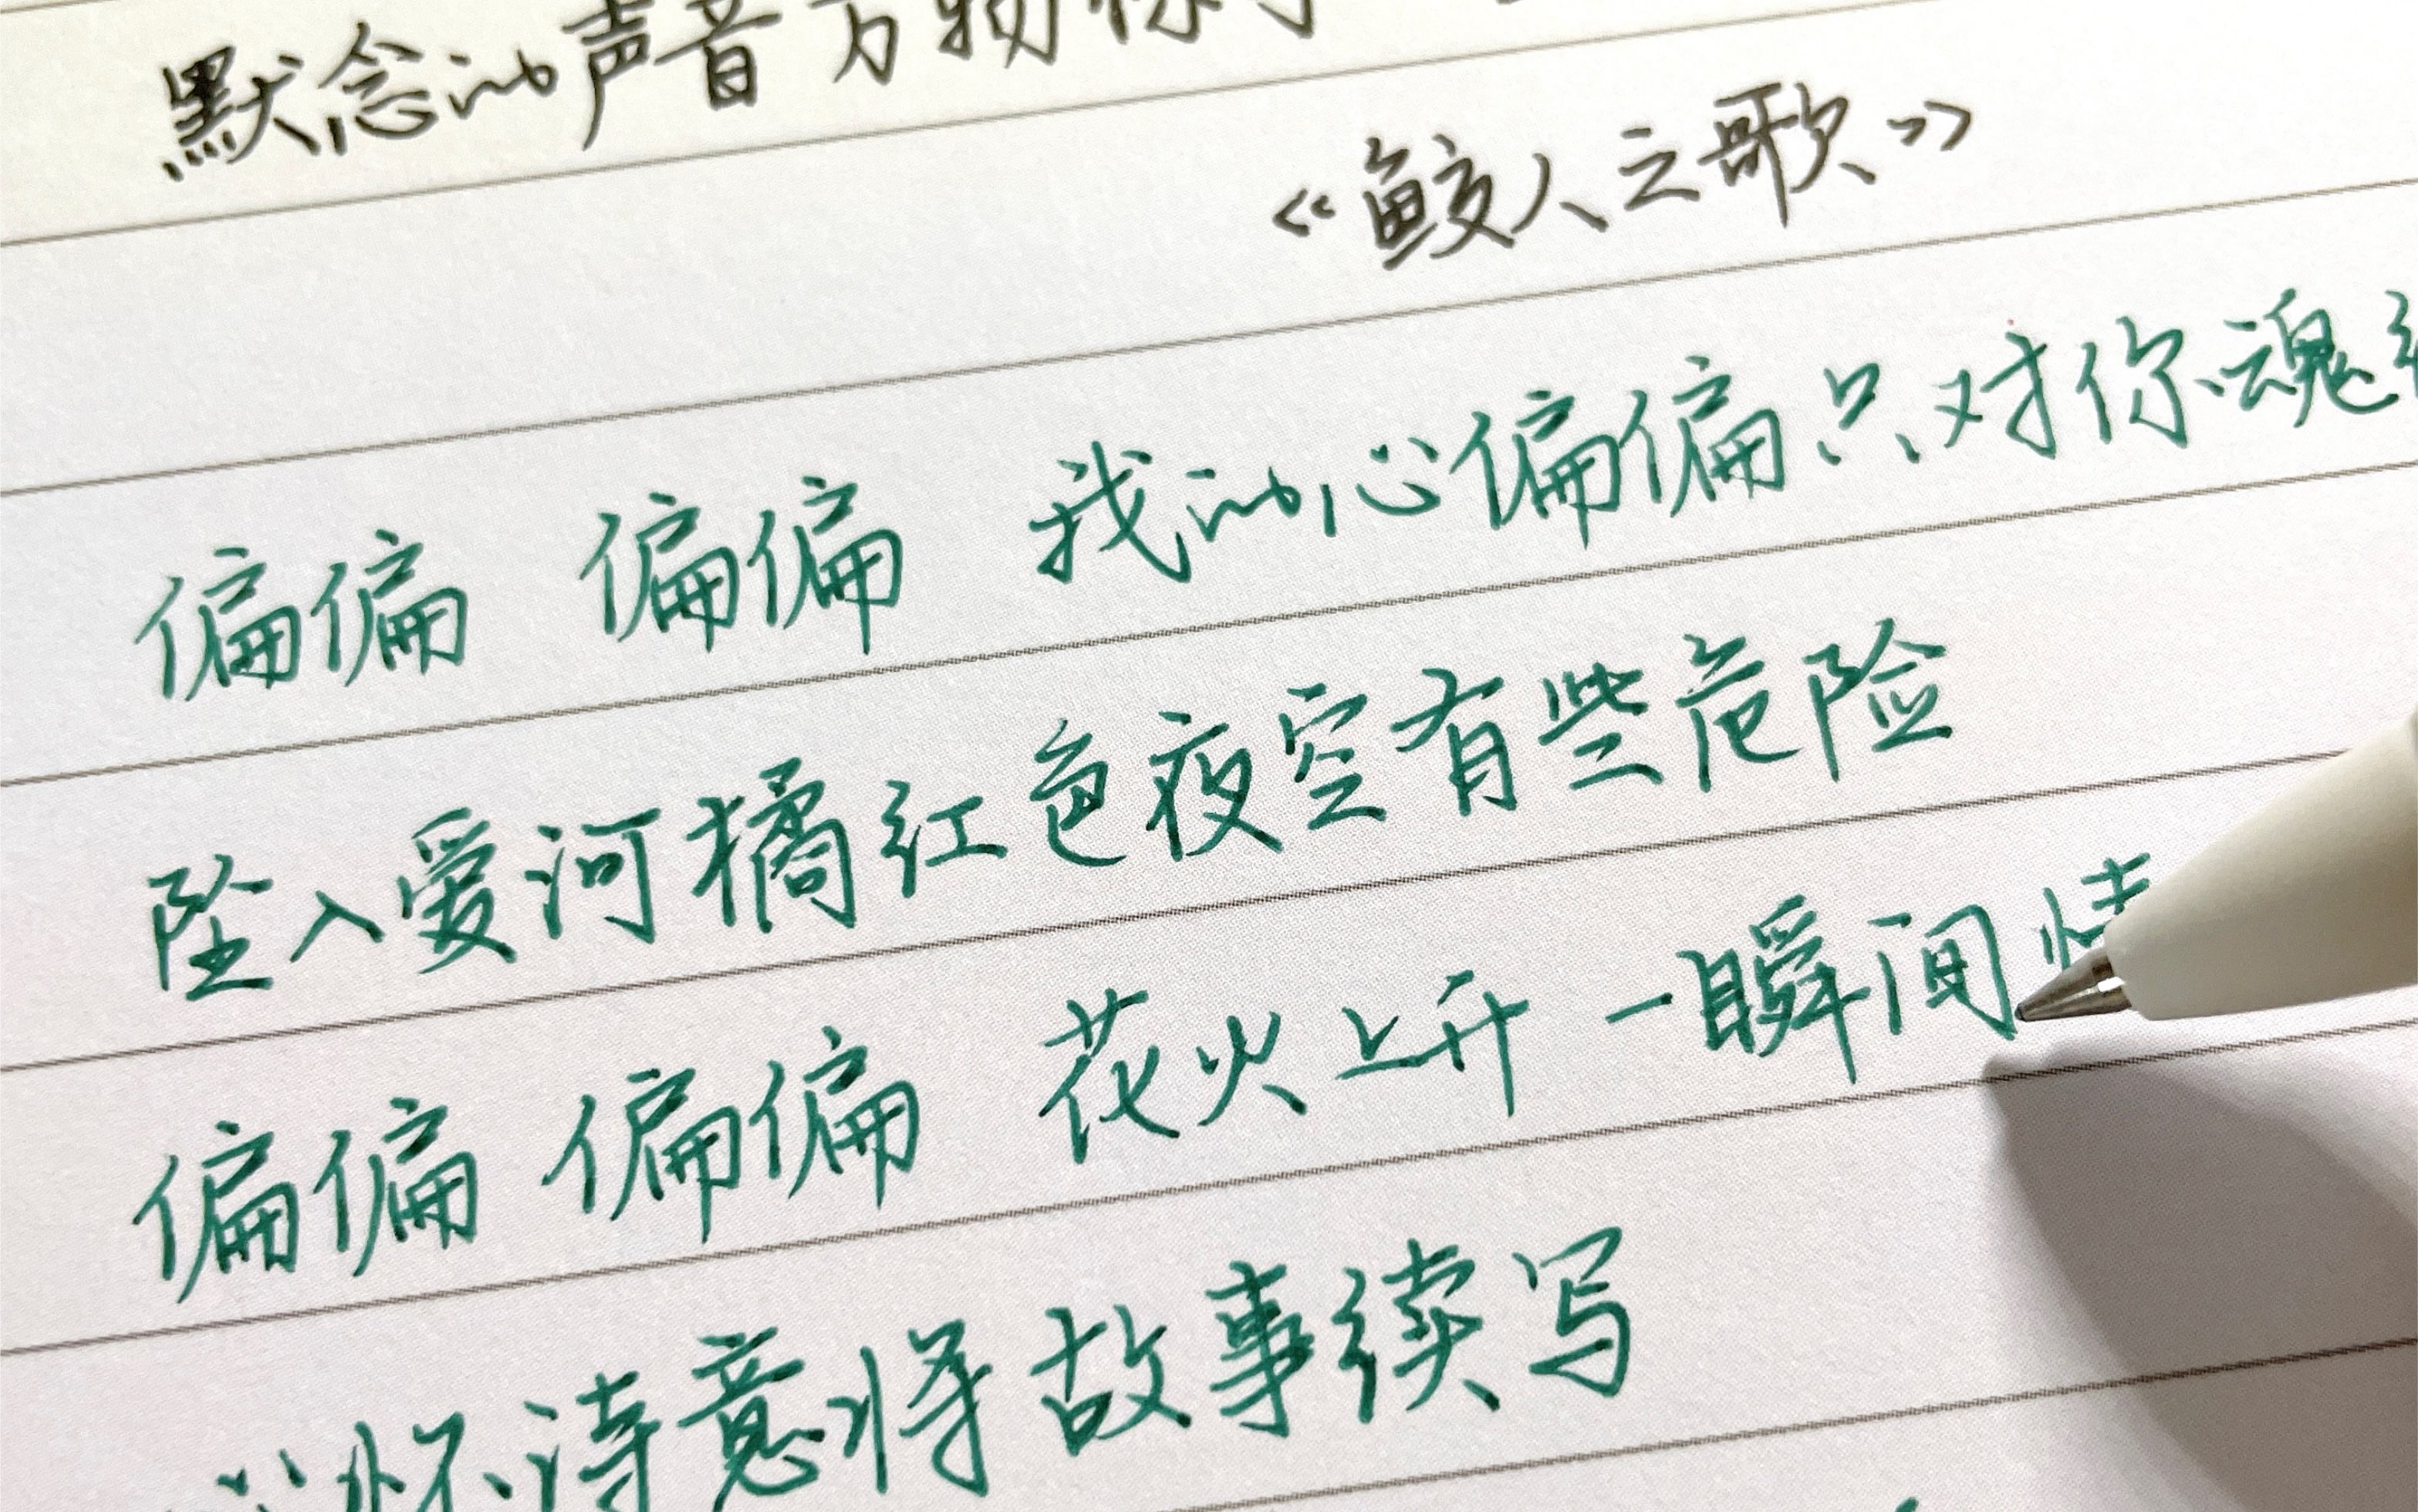 默念的声音万物
《鲛人之歌》
偏偏 偏偏 我的心偏偏只对你魂
坠入爱河橘红色夜空有些危险
偏偏 偏偏 花火上升 一瞬间情
心怀诗意将故事续写